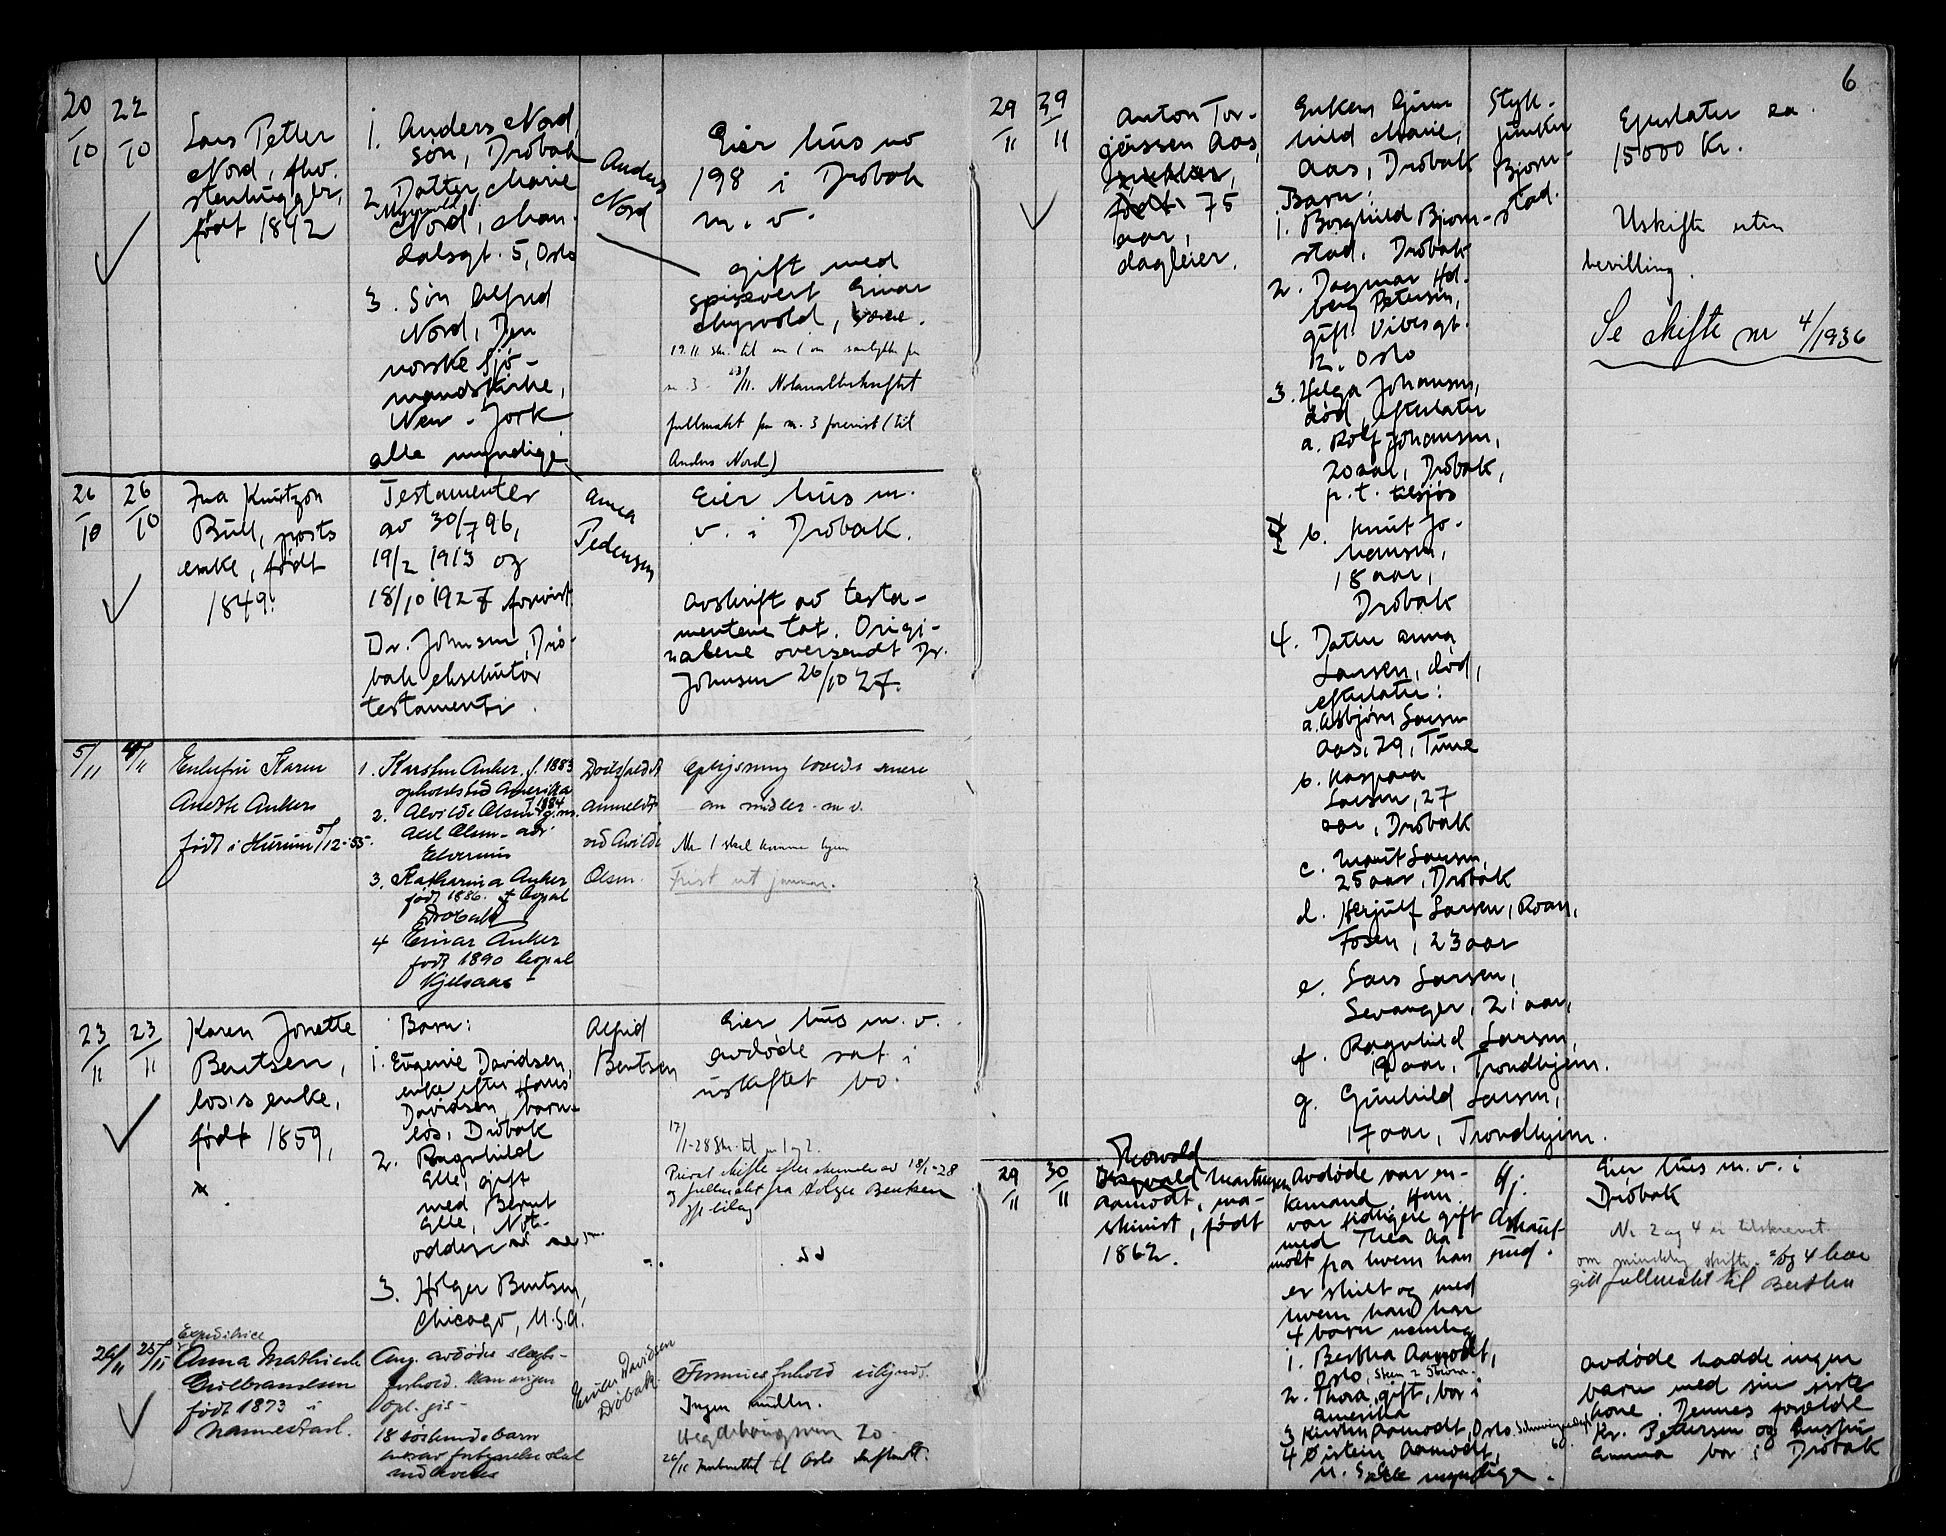 20/10 22/10
Lars Petter
Nord, fhv.
stenhugger,
født 1842
1. Anders Nord,
søn, Drøbak
2. Datter, Marie
Myrvold
Nord, Man-
dalsgt. 5, Oslo
3. Søn Alfred
Nord, Den
norske Sjø-
mandskirke,
New-York
alle myndige
Anders
Nord
Eier hus no
198 i Drøbak
m. v.
gift med
spisevert Einar
Myrvold,
19.11 skr. til nr 1 om samtykke fra
nr 3. 23/11. Notarialbekræftet
fullmakt fra nr. 3 forevist (til
Anders Nord)
26/10 26/10
Ina Knutzon
Bull, prests
enke, født
1849.
Testamenter
av 30/7 96,
19/2 1913 og
18/10 1927 forevist
Dr. Johnsen, Drø-
bak eksekutor
testamenti.
Anna
Pedersen
Eier hus m.
v. i Drøbak.
Avskrift av testa-
mentene tat. Origi-
nalene oversendt Dr.
Johnsen 26/10 27.
5/11 4/11
Enkefru Karen
Anette Ankers
født i Hurum 5/12-55.
1. Karsten Anker f. 1883
opholdsted Amerika
2. Alvilde Olsen f. 1884 g.m.
Axel Olsen - adr
Elverum
3. Katharina Anker
født 1886. Bopæl
Drøbak
4 Einar Anker
født 1890 bopæl
Kjelsaas -
Dødsfaldet
anmeldt
ved Alvilde
Olsen.
Oplysning loves senere
om midler m.v.
Nr 1 skal komme hjem
Frist ut januar.
23/11 23/11
Karen Jonette
Bentsen,
los's enke,
født 1859,
Barn:
1. Eugenie Davidsen,
enke efter Hans
Davidsen, barn-
løs, Drøbak
2. Ragnhild
Elle, gift
med Bernt
Elle, Not-
odden
3. Holger Bentsen,
Chicago, U.S.A.
Alfrid
Bentsen
Eier hus m. v.
avdøde sat i
uskiftet bo.
17/1-28 Skr. til nr 1 og 2.
Privat skifte efter skrivelse av 18/1-28
og fullmakt fra Holger Bentsen
jfr bilag
24/11 25/11
Expeditrice
Anna Mathilde
Gulbrandsen
født 1873 i
Nannestad.
Ang. avdødes slægts-
forhold kan ingen
opl. gis -
18 søskendebarn
hvorav fortegnelse skal
nedsendes
Einar Davidsen
Drøbak.
Formuesforhold ukjendt.
Ingen midler.
Hegdehaugsveien 20
26/11 Innberettet til Oslo skifterett.
6
29/11 29/11
Anton Tor-
jussen Aas,
født 75
aar,
dagleier.
Enken Gun-
hild Marie,
Aas, Drøbak
Barn:
1. Borghild Bjorn-
stad, Drøbak
2. Dagmar Hol-
berg Petersen,
gift. Vibesgt.
12. Oslo
3. Helga Johansen,
død, efterlater
a. Rolf Johansen,
20 aar, Drøbak,
p.t. tilsjøs
b. Knut Jo-
hansen,
18 aar,
Drøbak
4. Datter Anna
Larsen, død,
efterlater:
a. Asbjørn Larsen
Aas, 29, Tune
b. Kaspara
Larsen, 27
aar, Drøbak
c. Marit Larsen,
25 aar, Drøbak
d. Herjulf Larsen, Roan,
Fosen, 23 aar
e. Lars Larsen,
Levanger, 21 aar,
f. Ragnhild Larsen,
19 aar, Trondhjem.
g. Gunhild Larsen,
17 aar, Trondhjem.
Styk-
junker
Bjorn-
stad.
Efterlater ca.
15000 Kr.
Uskifte uten
bevilling.
Se skifte nr 4/1936
29/11 30/11
Thorvald
Martinsen
Aamodt, ma-
skinist, født
1862.
Avdøde var en-
kemand. Han
var tidligere gift
med Thea Aa-
modt fra hvem han
er skilt og med
hvem han har
4 barn nemlig
1. Bertha Aamodt,
Oslo,
2. Thora, gift, bor i
Amerika
3 Kirsten Aamodt, Oslo
4 Øistein Aamodt,
U. S. alle myndige.
Hj.
Askaut-
rud.
Eier hus m.v. i
Drøbak
Nr 2 og 4 er tilskrevet
om mindelig skifte. 2 og 4 har
gitt fullmakt til Bertha
Avdøde hadde ingen
barn med sin siste
kone. Dennes forældre
Kr. Pedersen og hustru
Emma bor i Drøbak